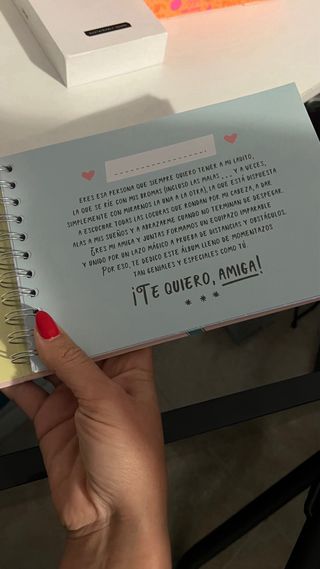 ERES ESA PERSONA QUE SIEMPRE QUIERO TENER A MI LADITO,
LA QUE SE RÍE CON MIS BROMAS (INCLUSO LAS MALAS...Y A VECES,
SIMPLEMENTE CON MIRARNOS LA UNA A LA OTRA), LA QUE ESTÁ DISPUESTA
A ESCUCHAR TODAS LAS LOCURAS QUE RONDAN POR MI CABEZA, A DAR
ALAS A MIS SUEÑOS Y A ABRAZARME CUANDO NO TERMINAN DE DESPEGAR.
ERES MI AMIGA Y JUNTAS FORMAMOS UN EQUIPAZO IMPARABLE
Y UNIDO POR UN LAZO MÁGICO A PRUEBA DE DISTANCIAS Y OBSTÁCULOS.
POR ESO, TE DEDICO ESTE ÁLBUM LLENO DE MOMENTAZOS
TAN GENIALES Y ESPECIALES COMO TÚ.
¡TE QUIERO, AMIGA!